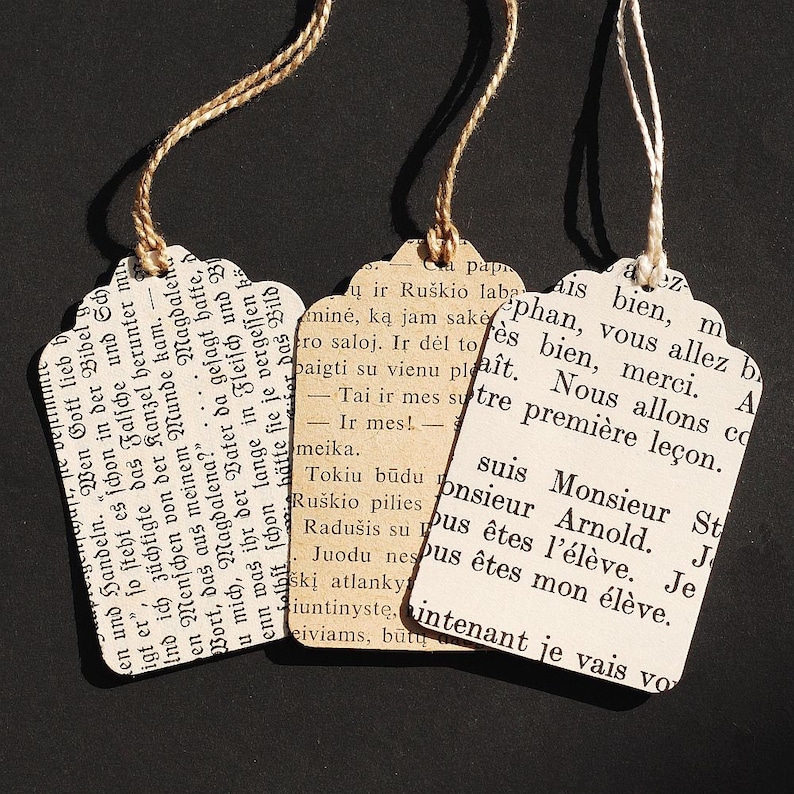 je bestimmte
lieb h
Wen Gott
Bibel
en und Handeln.
in der
und Sch
igt er", so steht es schon
das Falsche
herunter
ind ich züchtigte
Kanzel
Menschen von der
Munde kam. —
Wort, das aus meinem
Magdalen
u mich, Magdalena?" . . . . .
Vater da gesagt hatte,
enn was ihr der
in Fleisch und B
lange
schon
hätte sie je vergessen kö
das Bild
. — Čia papi
ų ir Ruškio laba
minė, ką jam sakė
ro saloj. Ir dėl to
paigti su vienu pl
— Tai ir mes su
— Ir mes! — š
meika.
Tokiu būdu
Ruškio pilies
Radušis su
Juodu nes
škį atlanky
siuntinystę,
eiviams, būtų
t allez-
ais bien, m
ephan, vous allez b
rès bien, merci. A
aît. Nous allons co
tre première leçon.
suis Monsieur St
onsieur Arnold. J
ous êtes l'élève. Je
ous êtes mon élève.
aintenant je vais vo